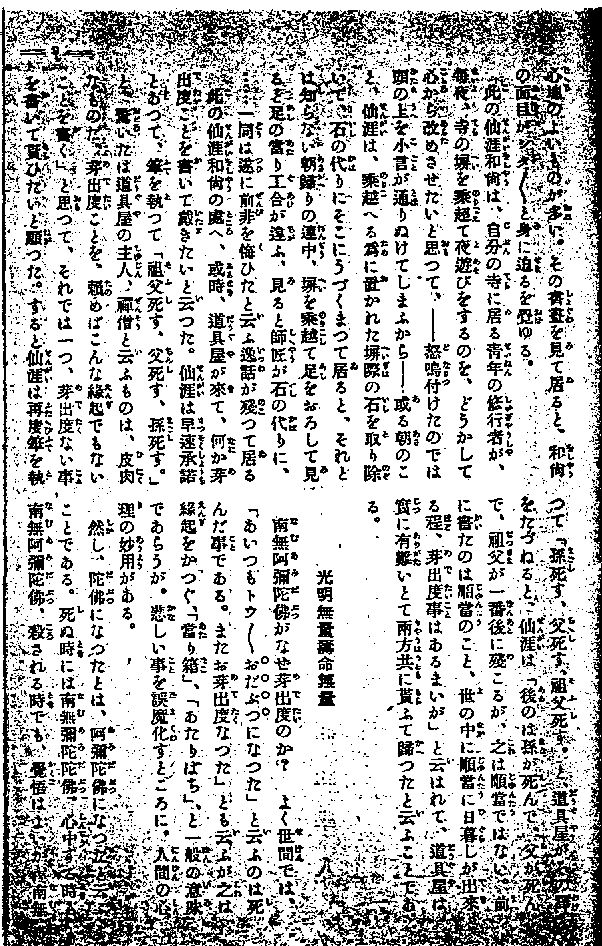 心地のよいものが多い。その書畫を見て居ると、和尙
の面目がシタ〳〵と身に迫るを覺ゆる。
此の仙涯和尙は、自分の寺に居る靑年の修行者が、
每夜、寺の塀を乘越て夜遊びをするのを、どうかして
心から改めさせたいと思つて、――怒鳴付けたのでは
頭の上を小言が通りぬけてしまふから――或る朝のこ
と、仙涯は、乘越へる爲に置かれた塀際の石を取り除
いて、石の代りにそこにうづくまつて居ると、それと
は知らない朝歸りの連中、塀を乘越て足をおろして見
ると足の當り工合が違ふ、見ると師匠が石の代りに、
一同は遂に前非を悔ひたと云ふ逸話が殘つて居る
此の仙涯和尙の處へ、或時、道具屋が來て、何か芽
出度ことを書いて戴きたいと云つた。仙涯は早速承諾
とあつて、筆を執つて「祖父死す、父死す、孫死す。」
と、驚いたは道具屋の主人、禪僧と云ふものは、皮肉
なものだ、芽出度ことを、賴めばこんな緣起でもない
ことを書く」と思つて、それでは一つ、芽出度ない事
を書いて貰ひたいと願つた。すると仙涯は再度筆を執
つて「孫死す、父死す、祖父死す。」と、道具屋が
をたづねると、仙涯は「後のは孫が死んで、父が死ん
で、祖父が一番後に殘こるが、之は順當ではない。前
に書たのは順當のこと、世の中に順當に日暮しが出來
る程、芽出度事はあるまいが」と云はれて、道具屋は
實に有難いとて兩方共に貰ふて歸つたと云ふことであ
る。
光明無量壽命無量
南無阿彌陀佛がなぜ芽出度のか？ よく世間では、
「あいつもトウ〳〵おだぶつになつた」と云ふのは死
んだ事である。またお芽出度なつた」とも云ふが之は
緣起をかつぐ「當り箱」、「あたりばち」、と一般の意味
であらうが。悲しい事を誤魔化すところに。人間の心
理の妙用がある。
然し、陀佛になつたとは、阿彌陀佛になつたと云ふ
ことである。死ぬ時には南無阿彌陀佛、心中する時も
南無阿彌陀佛、殺される時でも、覺悟はよいか南無